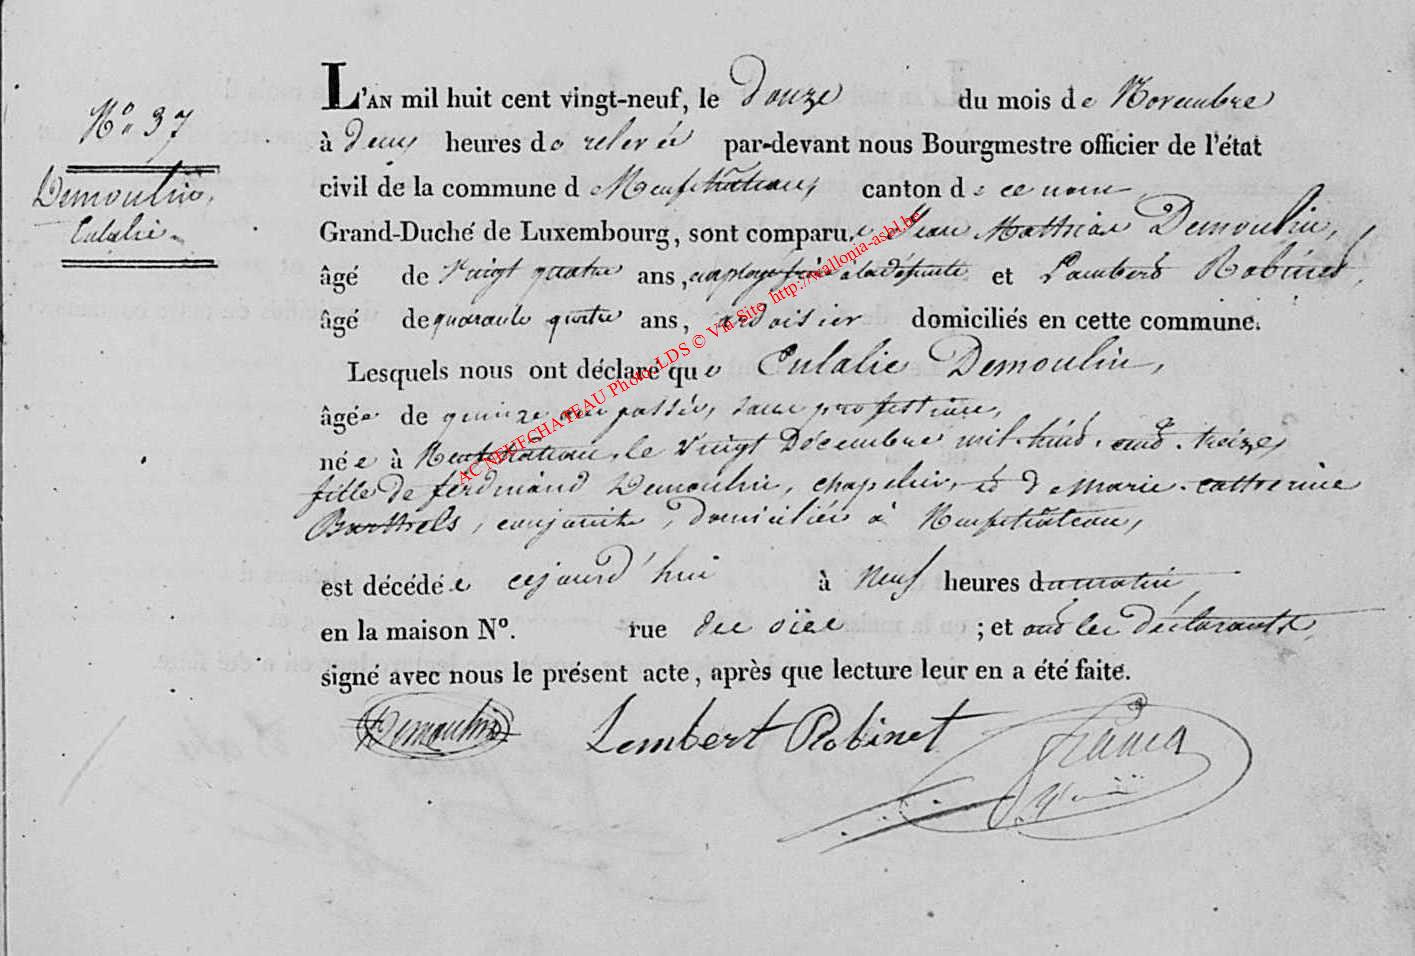 N° 37
Demoulin,
Eulalie
L'AN mil huit cent vingt-neuf, le Douze du mois de Novembre
à deux heures de relevée par-devant nous Bourgmestre officier de l'état
civil de la commune de Neufchâteau, canton de ce nom
Grand-Duché de Luxembourg, sont comparu e Jean Mathias Demoulin,
âgé de vingt quatre ans, employé frère à la défunte et Lambert Robinet,
âgé de quarante quatre ans, ardoisier domiciliés en cette commune.
Lesquels nous ont déclaré que Eulalie Demoulin,
âgée de quinze ans passés, sans profession,
née à Neufchâteau, le vingt Décembre mil huit cent treize,
fille de ferdinand Demoulin, chapelier, et de Marie Catherine
Barthels, conjoints, domiciliés à Neufchâteau,
est décédée cejourd'hui à Neuf heures du matin,
en la maison N°. rue ; et ont les déclarants
signé avec nous le présent acte, après que lecture leur en a été faite.
Demoulin Lembert Robinet
AC NEUFCHATEAU Photo LDS © Via Site http://wallonia-asbl.be